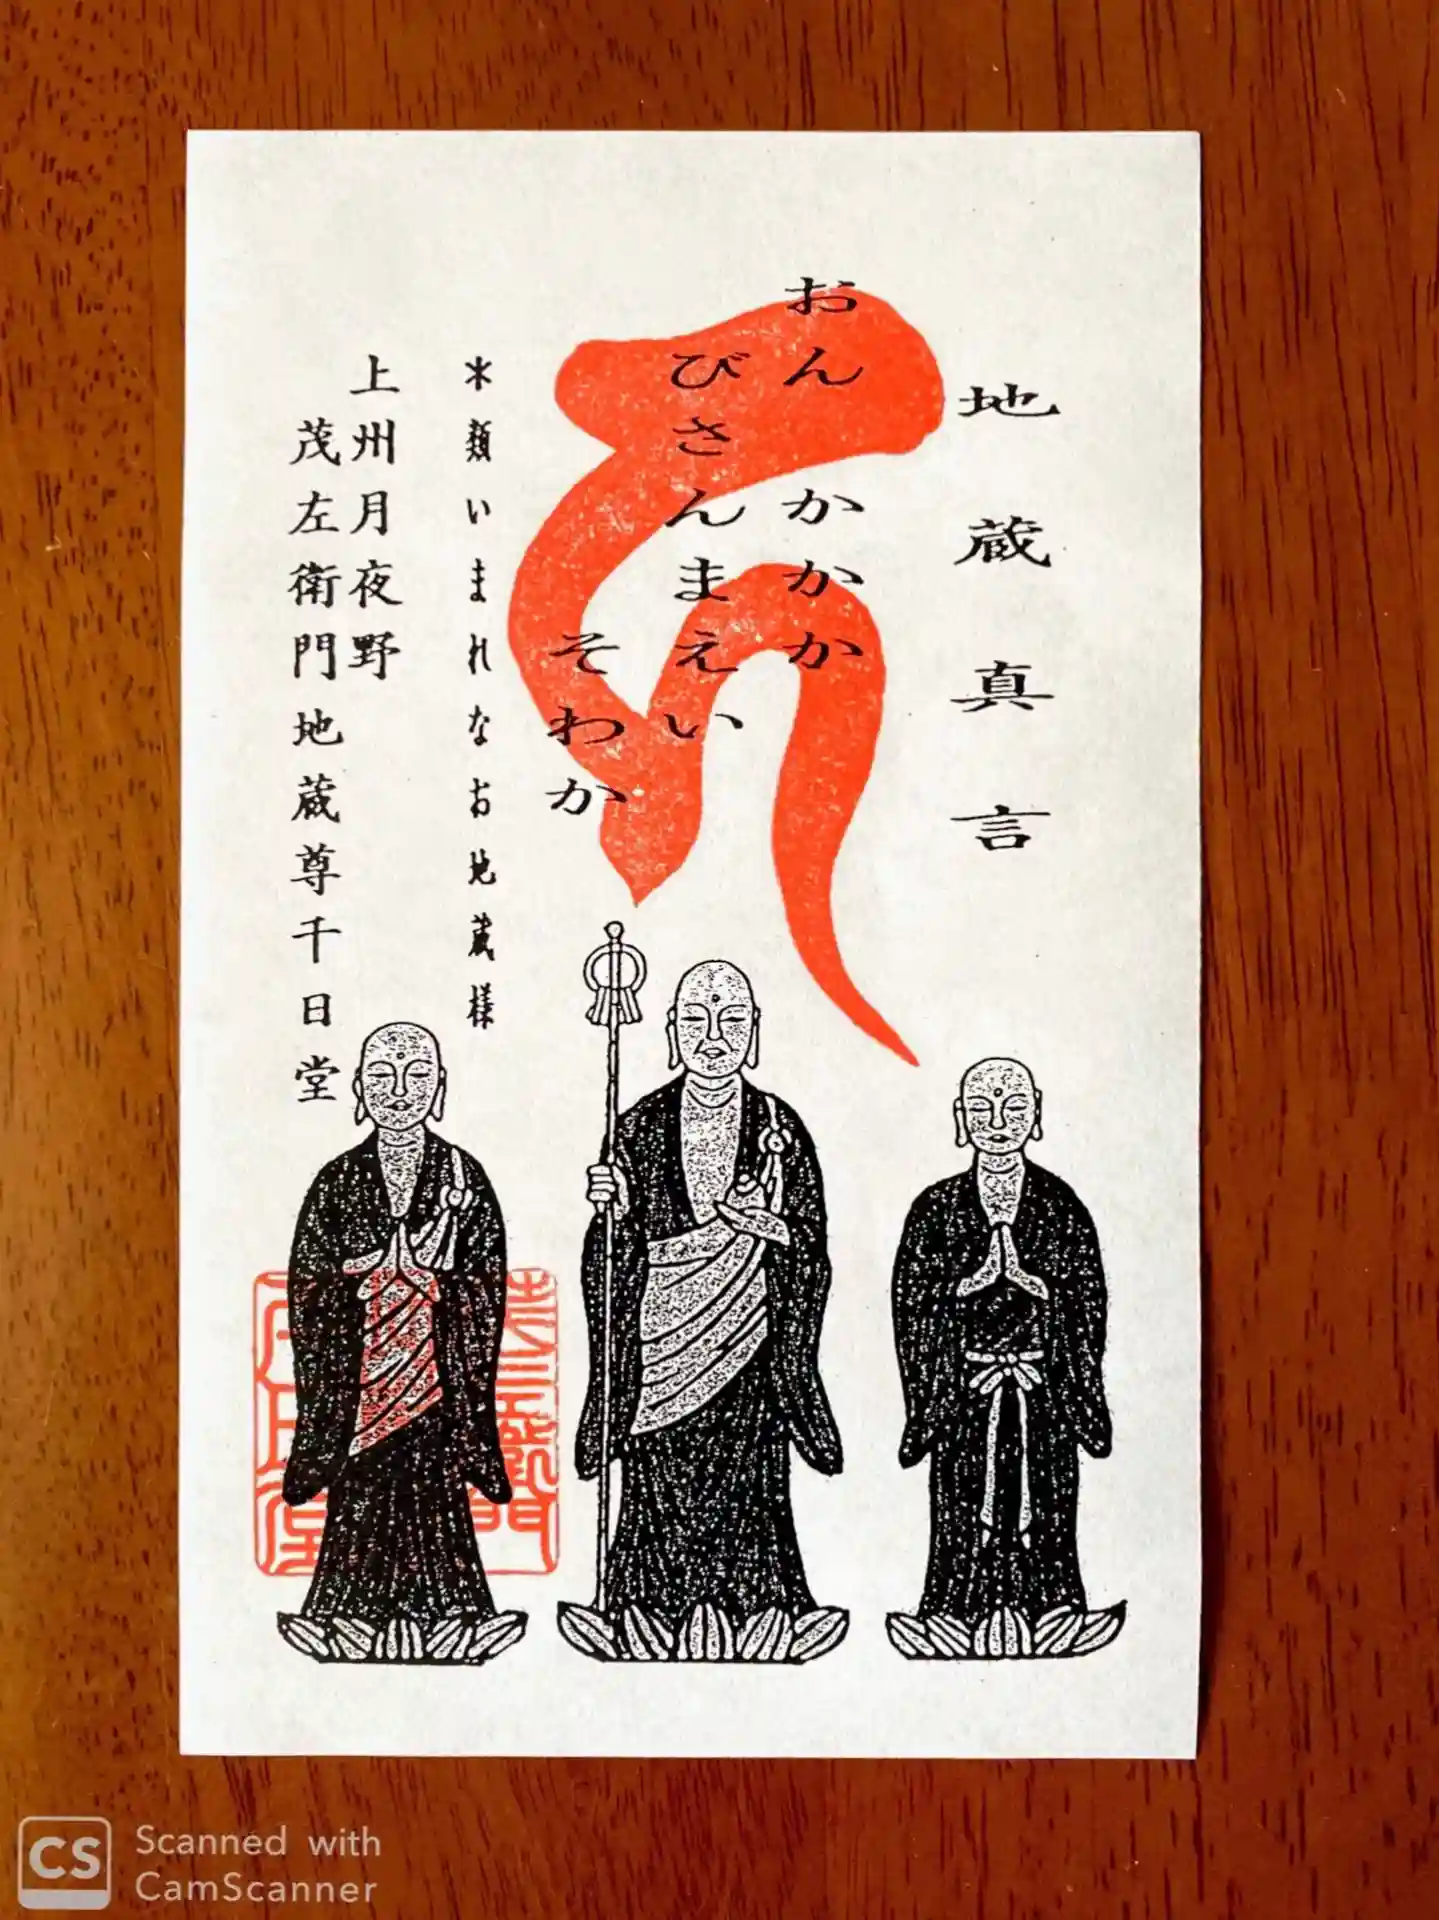 地蔵真言
おん かかか
びさんまえい
そわか
*類いまれなお地蔵様
上州月夜野
茂左衛門地蔵尊千日堂
Scanned with
CamScanner